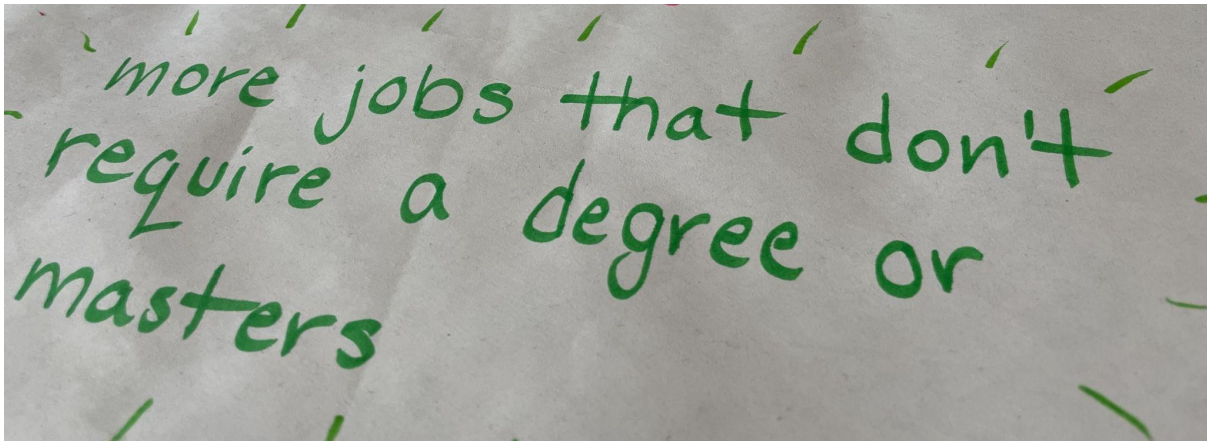 more jobs that don't
require a degree or
masters